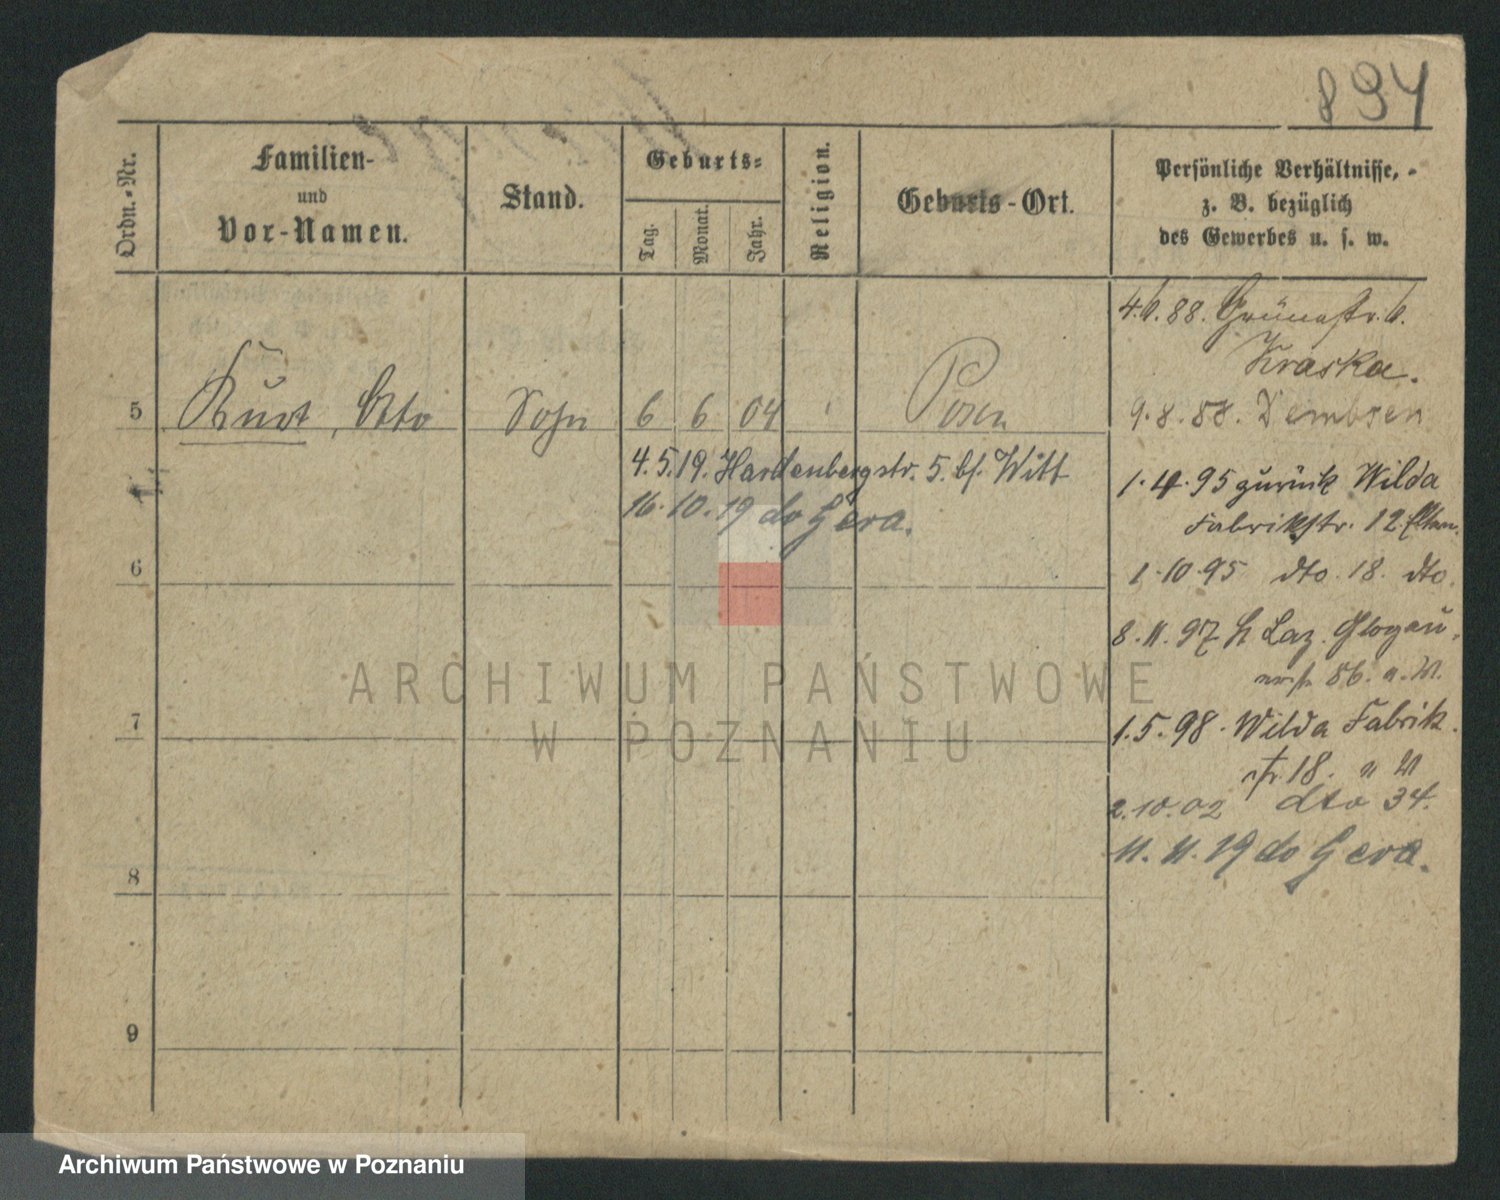 894
Ordn.-Nr.
Familien-
und
Vor-Namen.
Stand.
Geburts-
Tag.
Monat.
Jahr.
Religion.
Geburts-Ort.
Persönliche Verhältnisse,
z. B. bezüglich
des Gewerbes u. s. w.
5 Kurt, Otto Sohn 6 6 04 Posen
4.5.19. Hardenbergstr. 5. bf. Witt
16.10.19 do Gera.
6
7
8
9
4.6.88. Grünestr. 6.
Kraska.
9.8.88. Dembsen
1.4.95 zurück Wilda
Fabrikstr. 12
1.10.95 dto. 18. dto.
8.11.97 Laz. Glogau-
erstr 86. a. W.
1.5.98. Wilda Fabrik
str 18. " W
2.10.02 dto 34.
11.11.19 do Gera.
ARCHIWUM PAŃSTWOWE
W POZNANIU
Archiwum Państwowe w Poznaniu